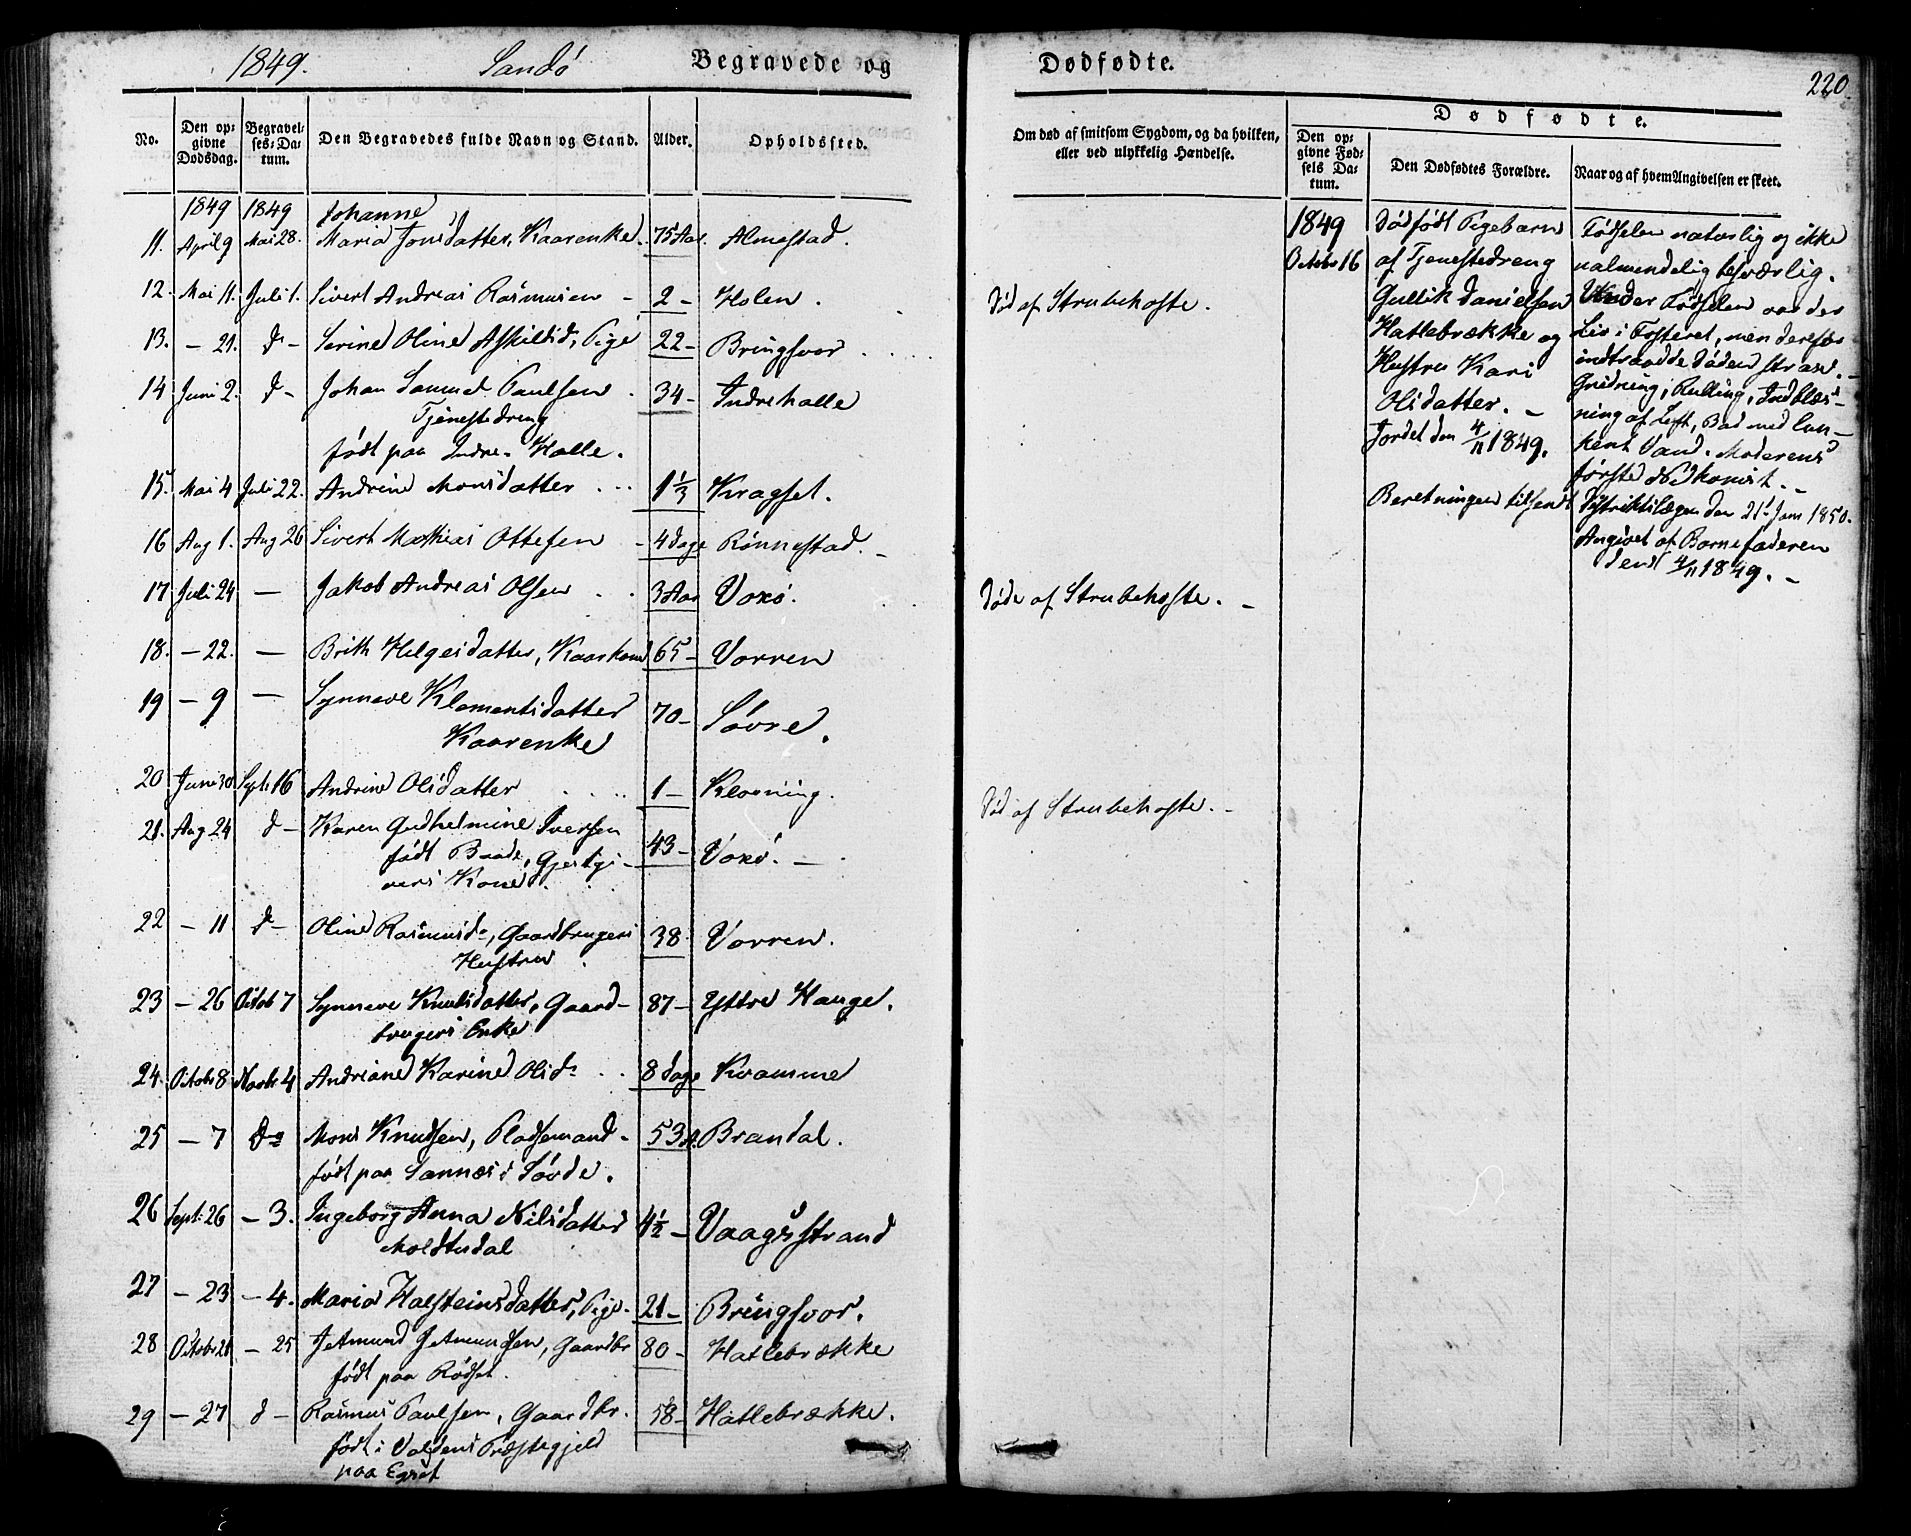 1849. Sandö Begravede og
No.
Den opgivne Dødsdag.
Begravelses-Datum.
Den Begravedes fulde Navn og Stand.
Alder.
Opholdssted.
1849 1849 Johanne
11. April 9 Mai 28. Maria Jonsdatter, Kaarenke. 75 Aar. Almestad.
12. Mai 11. Juli 1. Sivert Andreas Rasmusen - 2 - Holen.
13. - 21. d - Serine Oline Askilsd, Pige 22 - Bringsvor
14 Juni 2. d - Johan Samuel Paulsen. 34 - Indrehalle
Tjenestedreng
født paa Indre-Halle.
15. Mai 4 Juli 22. Andrine Monsdatter 1 1/3 Kragset.
16 Aug 1. Aug 26 Sivert Mathias Ottesen - 4 dage Rönnestad. -
17 Juli 24 - Jakob Andreas Olsen 3 Aar Voxö.
18. - 22. - Brith Helgesdatter, Kaarkone 65 - Vorren
19 - 9 - Synneve Klementsdatter 70 - Sövre.
Kaarenke
20 Juni 30. Septr 16 Andrine Olsdatter 1 - Klovning.
21. Aug 24 d - Karen Gudhelmine Iversen 43 - Voxö. -
født Baade, Gjestgi-
vers Kone.
22 - 11 d - Oline Rasmusd., Gaardbrugers 38 Vorren.
Hustru
23 - 26 Octob 7 Synneve Knutsdatter, Gaard- 87 - Yttre Hauge.
brugers Enke
24. Octobr 8 Novbr 4 Andriane Karine Olsd. 8 dage Kvamme
25 - 7 do Mons Knudsen, Pladsemand - 53 A. Brandal.
født paa Sannæs i Sövde.
26 Sept: 26 - 3. Ingeborg Anna Nilsdatter 4 1/2 - Vaagsstrand
Moldtudal
27 - 23 - 4. Maria Halsteinsdatter, Pige - 21 - Bringsvor.
28 Octobr 21 - 25 Jetmund Jetmundsen, Gaardbr 80 - Hatlebrække
født paa Rödset.
29 - 27 d - Rasmus Paulsen, Gaardbr. 58 - Hatlebrække.
født i Voldens Præstegjeld
paa Egset
Dødfødte.
220.
Om død af smitsom Sygdom, og da hvilken,
eller ved ulykkelig Hændelse.
Dødfødte.
Den opgivne Fødsels Datum.
Den Dødfødtes Forældre.
Naar og af hvem Angivelsen er skeet.
Död af Strubehoste.
Döde af Strubehoste. -
Död af Strubehoste. -
1849
Octobr 16
Dödfödt Pigebarn
af Tjenestedreng
Gullik Danielsen
Hatlebrække og
Hustru Kari
Olsdatter. -
Jordet den 4/11 1849.
Beretningen tilsendt
Födselen naturlig og ikke
ualmindelig besværlig.
Under Födselen var der
Liv i Fosteret, men derefter
indtraadte Döden strax. -
Gnidning, Rulling, Indblæs-
ning af Luft, Bad med lun-
kent Vand. Moderens
förste Nedkomst. -
Distriktslægen den 21de Jan 1850.
Angivet af Barnefaderen
den 4/11 1849. -